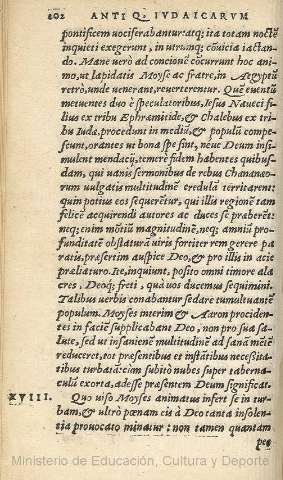 202 ANTIQ. IVDAICARVM
pontificem vociferabantur: atq; ita totam noctẽ
inquieti exegerunt, in utrunq; cõuicia iactan-
do. Mane uerò ad concionẽ cõcurrunt hoc ani-
mo, ut lapidatis Moyse ac fratre, in Aegyptũ
retrò, unde uenerant, reuerterentur. Quẽ euentũ
metuentes duo è speculatoribus, Iesus Naueci fi-
lius ex tribu Ephræmitide, & Chalebus ex tri-
bu Iuda, procedunt in mediũ, & populũ compe-
scunt, orantes ut bona spe sint, neue Deum insi-
mulent mendacij, temerè fidem habentes quibus-
dam, qui uanis sermonibus de rebus Chananæo-
rum uulgatis multitudinẽ credulã territarent:
quin potius eos sequerẽtur, qui illis regionẽ tam
felicẽ acquirendi autores ac duces se præberẽt:
neq; enim mõtiũ magnitudinẽ, neq; amniũ pro-
funditatẽ obstaturã uiris fortiter rem gerere pa
ratis, præsertim auspice Deo, & pro illis in acie
præliaturo. Ite, inquiunt, posito omni timore ala
cres, Deoq; freti, quà uos ducemus sequimini.
Talibus uerbis conabantur sedare tumultuantẽ
populum. Moyses interim & Aaron prociden-
tes in faciẽ supplicabant Deo, non pro sua sa-
lute, sed ut insanienẽ multitudinẽ ad sanã mẽtẽ
reduceret, tot præsentibus et instãtibus necessita-
tibus turbatã: cùm subitò nubes super taberna-
culũ exorta, adesse præsentem Deum significat.
XVIII. Quo uiso Moyses animatus infert se in tur-
bam, & ultrò pœnam eis à Deo tanta insolen-
tia prouocato minatur: non tamen quantam
pec
Ministerio de Educación, Cultura y Deporte